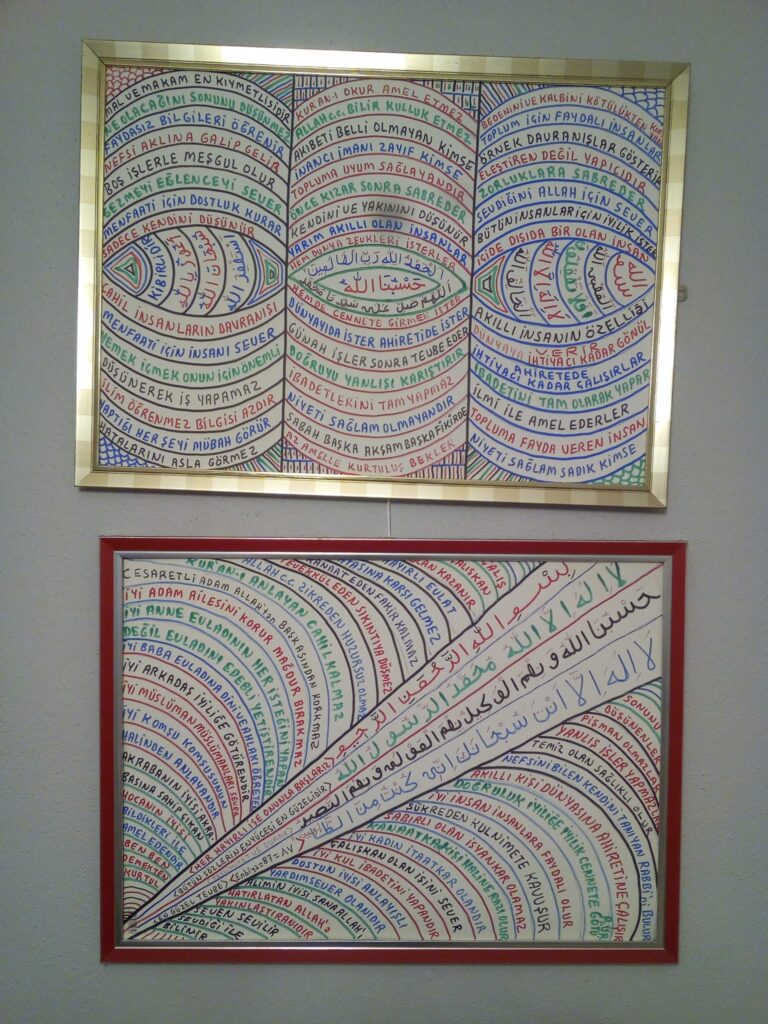 MAL VE MAKAM EN KIYMETLİSİDİR
NE OLACAĞINI SONUNU DÜŞÜNMEZ
FAYDASIZ BİLGİLERİ ÖĞRENİR
NEFSİ AKLINA GALİP GELİR
BOŞ İŞLERLE MEŞGUL OLUR
GEZMEYİ EĞLENCEYİ SEVER
MENFAATİ İÇİN DOSTLUK KURAR
SADECE KENDİNİ DÜŞÜNÜR
KİBİRLİDİR
CAHİL İNSANLARIN DAVRANIŞI
MENFAATİ İÇİN İNSANI SEVER
YEMEK İÇMEK ONUN İÇİN ÖNEMLİ
DÜŞÜNEREK İŞ YAPAMAZ
İLİM ÖĞRENMEZ BİLGİSİ AZDIR
YAPTIĞI HER ŞEYİ MÜBAH GÖRÜR
HATALARINI ASLA GÖRMEZ
KURAN-I OKUR AMEL ETMEZ
ALLAH C.C. BİLİR KULLUK ETMEZ
AKIBETİ BELLİ OLMAYAN KİMSE
İNANCI İMANI ZAYIF KİMSE
TOPLUMA UYUM SAĞLAYANDIR
ÖNCE KIZAR SONRA SABREDER
KENDİNİ VE YAKININI DÜŞÜNÜR
YARIM AKILLI OLAN İNSANLAR
HEM DÜNYA ZEVKLERİ İSTERLER
حَسْبُنَا اللّٰهُ
اللهم صل على سيدنا محمد
HEMDE CENNETE GİRMEK İSTER
DÜNYAYIDA İSTER AHİRETİDE İSTER
GÜNAH İŞLER SONRA TEUBE EDER
DOĞRUYU YANLIŞI KARIŞTIRIR
İBADETLERİNİ TAM YAPMAZ
NİYETİ SAĞLAM OLMAYANDIR
SABAH BAŞKA AKŞAM BAŞKA FİKİRDE
AZ AMELLE KURTULUŞ BEKLER
BEDENİNİ VE KALBİNİ KÖTÜLÜKTEN
TOPLUM İÇİN FAYDALI İNSANLAR
ÖRNEK DAVRANIŞLAR GÖSTERİR
ELEŞTİREN DEĞİL YAPICIDIR
ZORLUKLARA SABREDER
SEVDİĞİNİ ALLAH İÇİN SEVER
BÜTÜN İNSANLAR İÇİN İYİLİK İSTER
İÇİDE DIŞIDA BİR OLAN İNSAN
AKILLI İNSANIN ÖZELLİĞİ
DÜNYAYA İHTİYACI KADAR GÖNÜL VERİR
AHİRETEDE İHTİYACI KADAR ÇALIŞIRLAR
İBADETİNİ TAM OLARAK YAPAR
İLMİ İLE AMEL EDERLER
TOPLUMA FAYDA VEREN İNSAN
NİYETİ SAĞLAM SADIK KİMSE
KUR'AN-I ANLAYAN CAHİL KALMAZ
ALLAH C.C. ZİKREDEN HUZURSUZ OLMAZ
TEVEKKÜL EDEN SIKINTIYA DÜŞMEZ
KANAAT EDEN FAKİR KALMAZ
HAYIRLI EVLAT
KARŞI GELMEZ
ÇALIŞKAN
KAZANIR
CESARETLİ ADAM ALLAH'tan BAŞKASINDAN KORKMAZ
İYİ ADAM AİLESİNİ KORUR MAĞDUR BIRAKMAZ
İYİ ANNE EVLADININ HER İSTEĞİNİ YAPAN
DEĞİL EVLADINI EDEBLİ YETİŞTİRENDİR
İYİ BABA EVLADINA DİNİ VE AHLAKI ÖĞRETEN
İYİ ARKADAŞ İYİLİĞE GÖTÜRENDİR
İYİ MÜSLÜMAN MÜSLÜMANLARI SEVER
İYİ KOMŞU KOMŞUSUNUN
HALİNDEN ANLAYANDIR
AKRABANIN İYİSİ AKRABASINA SAHİP ÇIKAN
HOCANIN İYİSİ
BİLDİKLERİ İLE
AMEL EDENDİR
BEN BEN
DEMEKTEN
KURTUL
بِسْمِ اللّٰهِ الرَّحْمٰنِ الرَّحِيمِ
لا اله الا الله محمد الرسول الله
حسبنا الله ونعم الوكيل نعم المولى ونعم النصير
لا اله الا انت سبحانك انى كنت من الظا
HER HAYIRLI İŞE ONUNLA BAŞLARIZ
BÜTÜN SÖZLERİN EN YÜCESİ EN GÜZELİDİR
EN GÜZEL TEUBE Enbiya=87=٨٧
SONUNU
DÜŞÜNENLER
PİŞMAN OLMAZLAR
YANLIŞ İŞLER YAPMAZLAR
TEMİZ OLAN SAĞLIKLI OLUR
NEFSİNİ BİLEN KENDİNİ TANIYAN RABBİNİ BULUR
AKILLI KİŞİ DÜNYASINA AHİRETİNE ÇALIŞIR
DOĞRULUK İYİLİĞE İYİLİK CENNETE GÖTÜRÜR
İYİ İNSAN İNSANLARA FAYDALI OLUR
ŞÜKREDEN KUL NİMETE KAVUŞUR
SABIRLI OLAN İSYANKAR OLAMAZ
KANAATKAR KİŞİ
İYİ KADIN İTAATKAR OLANDIR
ÇALIŞKAN OLAN İŞİNİ SEVER
İYİ KUL İBADETİNİ YAPANDIR
DOSTUN İYİSİ ANLAYIŞLI
YARDIMSEVER OLANIDIR
ALİMİN İYİSİ SANA ALLAH'I
HATIRLATAN ALLAH'a
YAKINLAŞTIRANIDIR
SEVEN SEVİLİR
SEVDİĞİ İLE
BİLİNİR